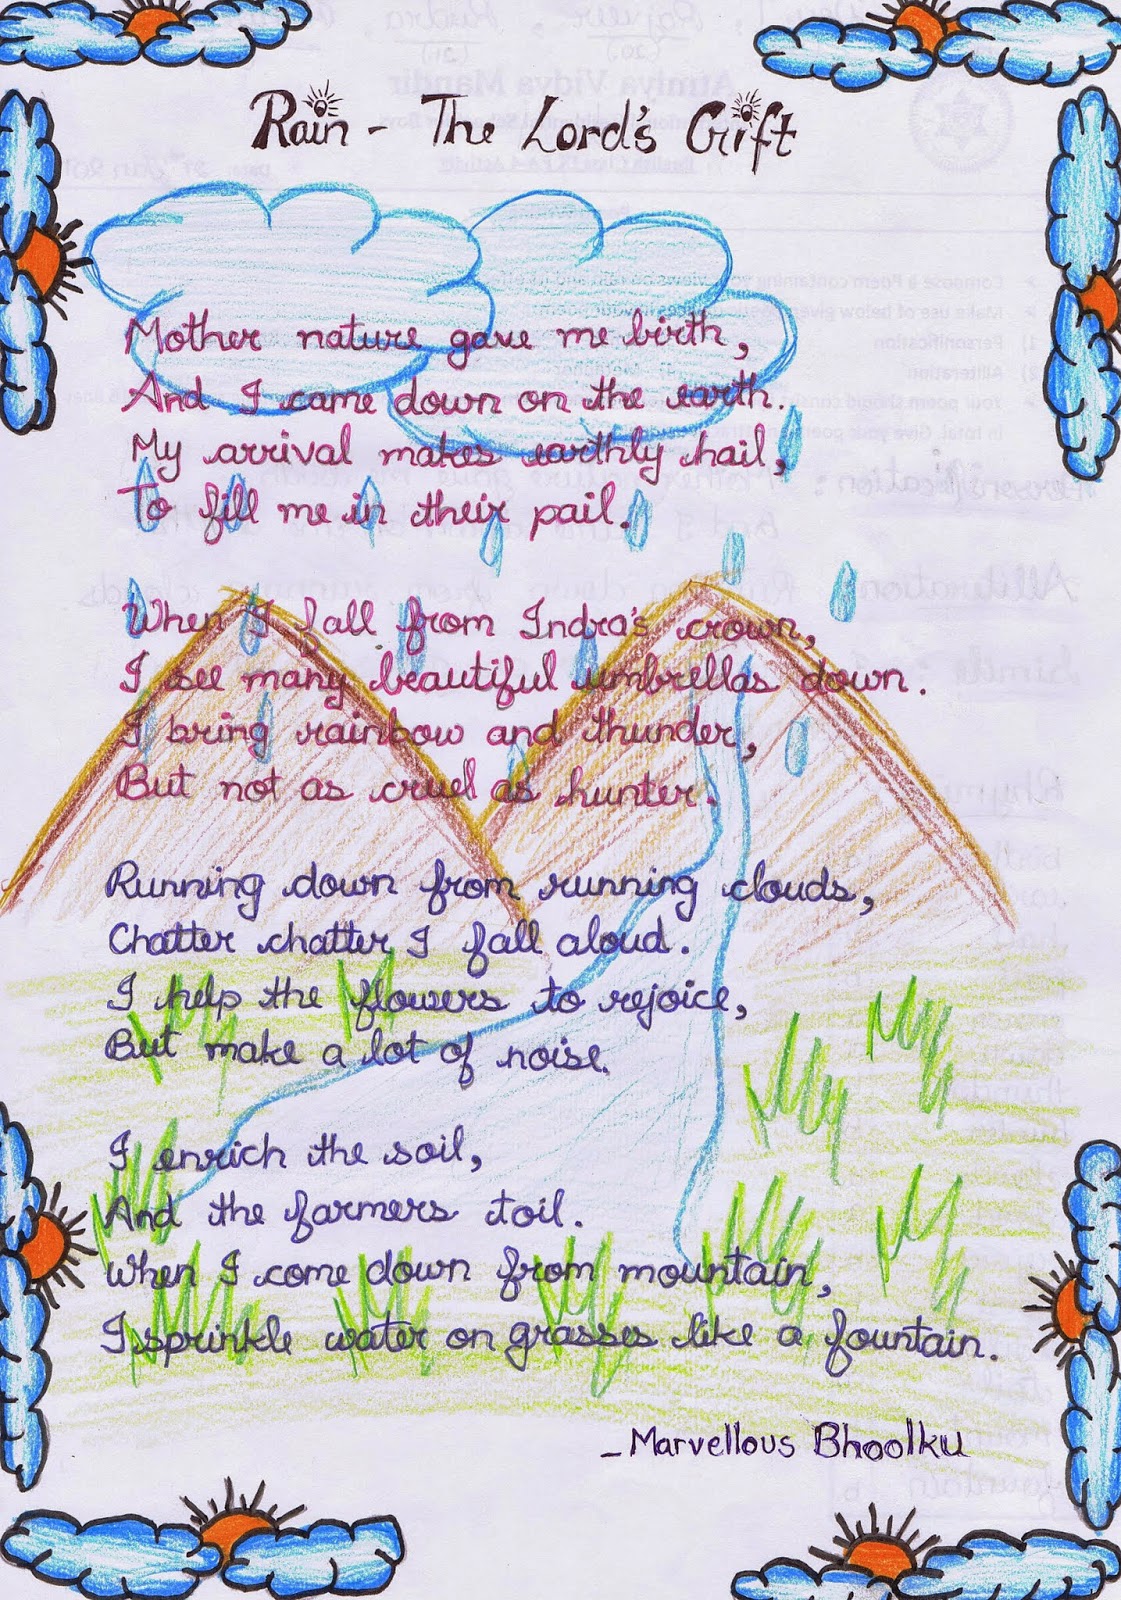 Rain - The Lord's Gift
Mother nature gave me birth,
And I came down on the earth.
My arrival makes earthly hail,
To fill me in their pail.
When I fall from Indra's crown,
I see many beautiful umbrellas down.
I bring rainbow and thunder,
But not as cruel as hunter.
Running down from running clouds,
Chatter chatter I fall aloud.
I help the flowers to rejoice,
But make a lot of noise.
I enrich the soil,
And the farmers toil.
When I come down from mountain,
I sprinkle water on grasses like a fountain.
- Marvellous Bhoolku